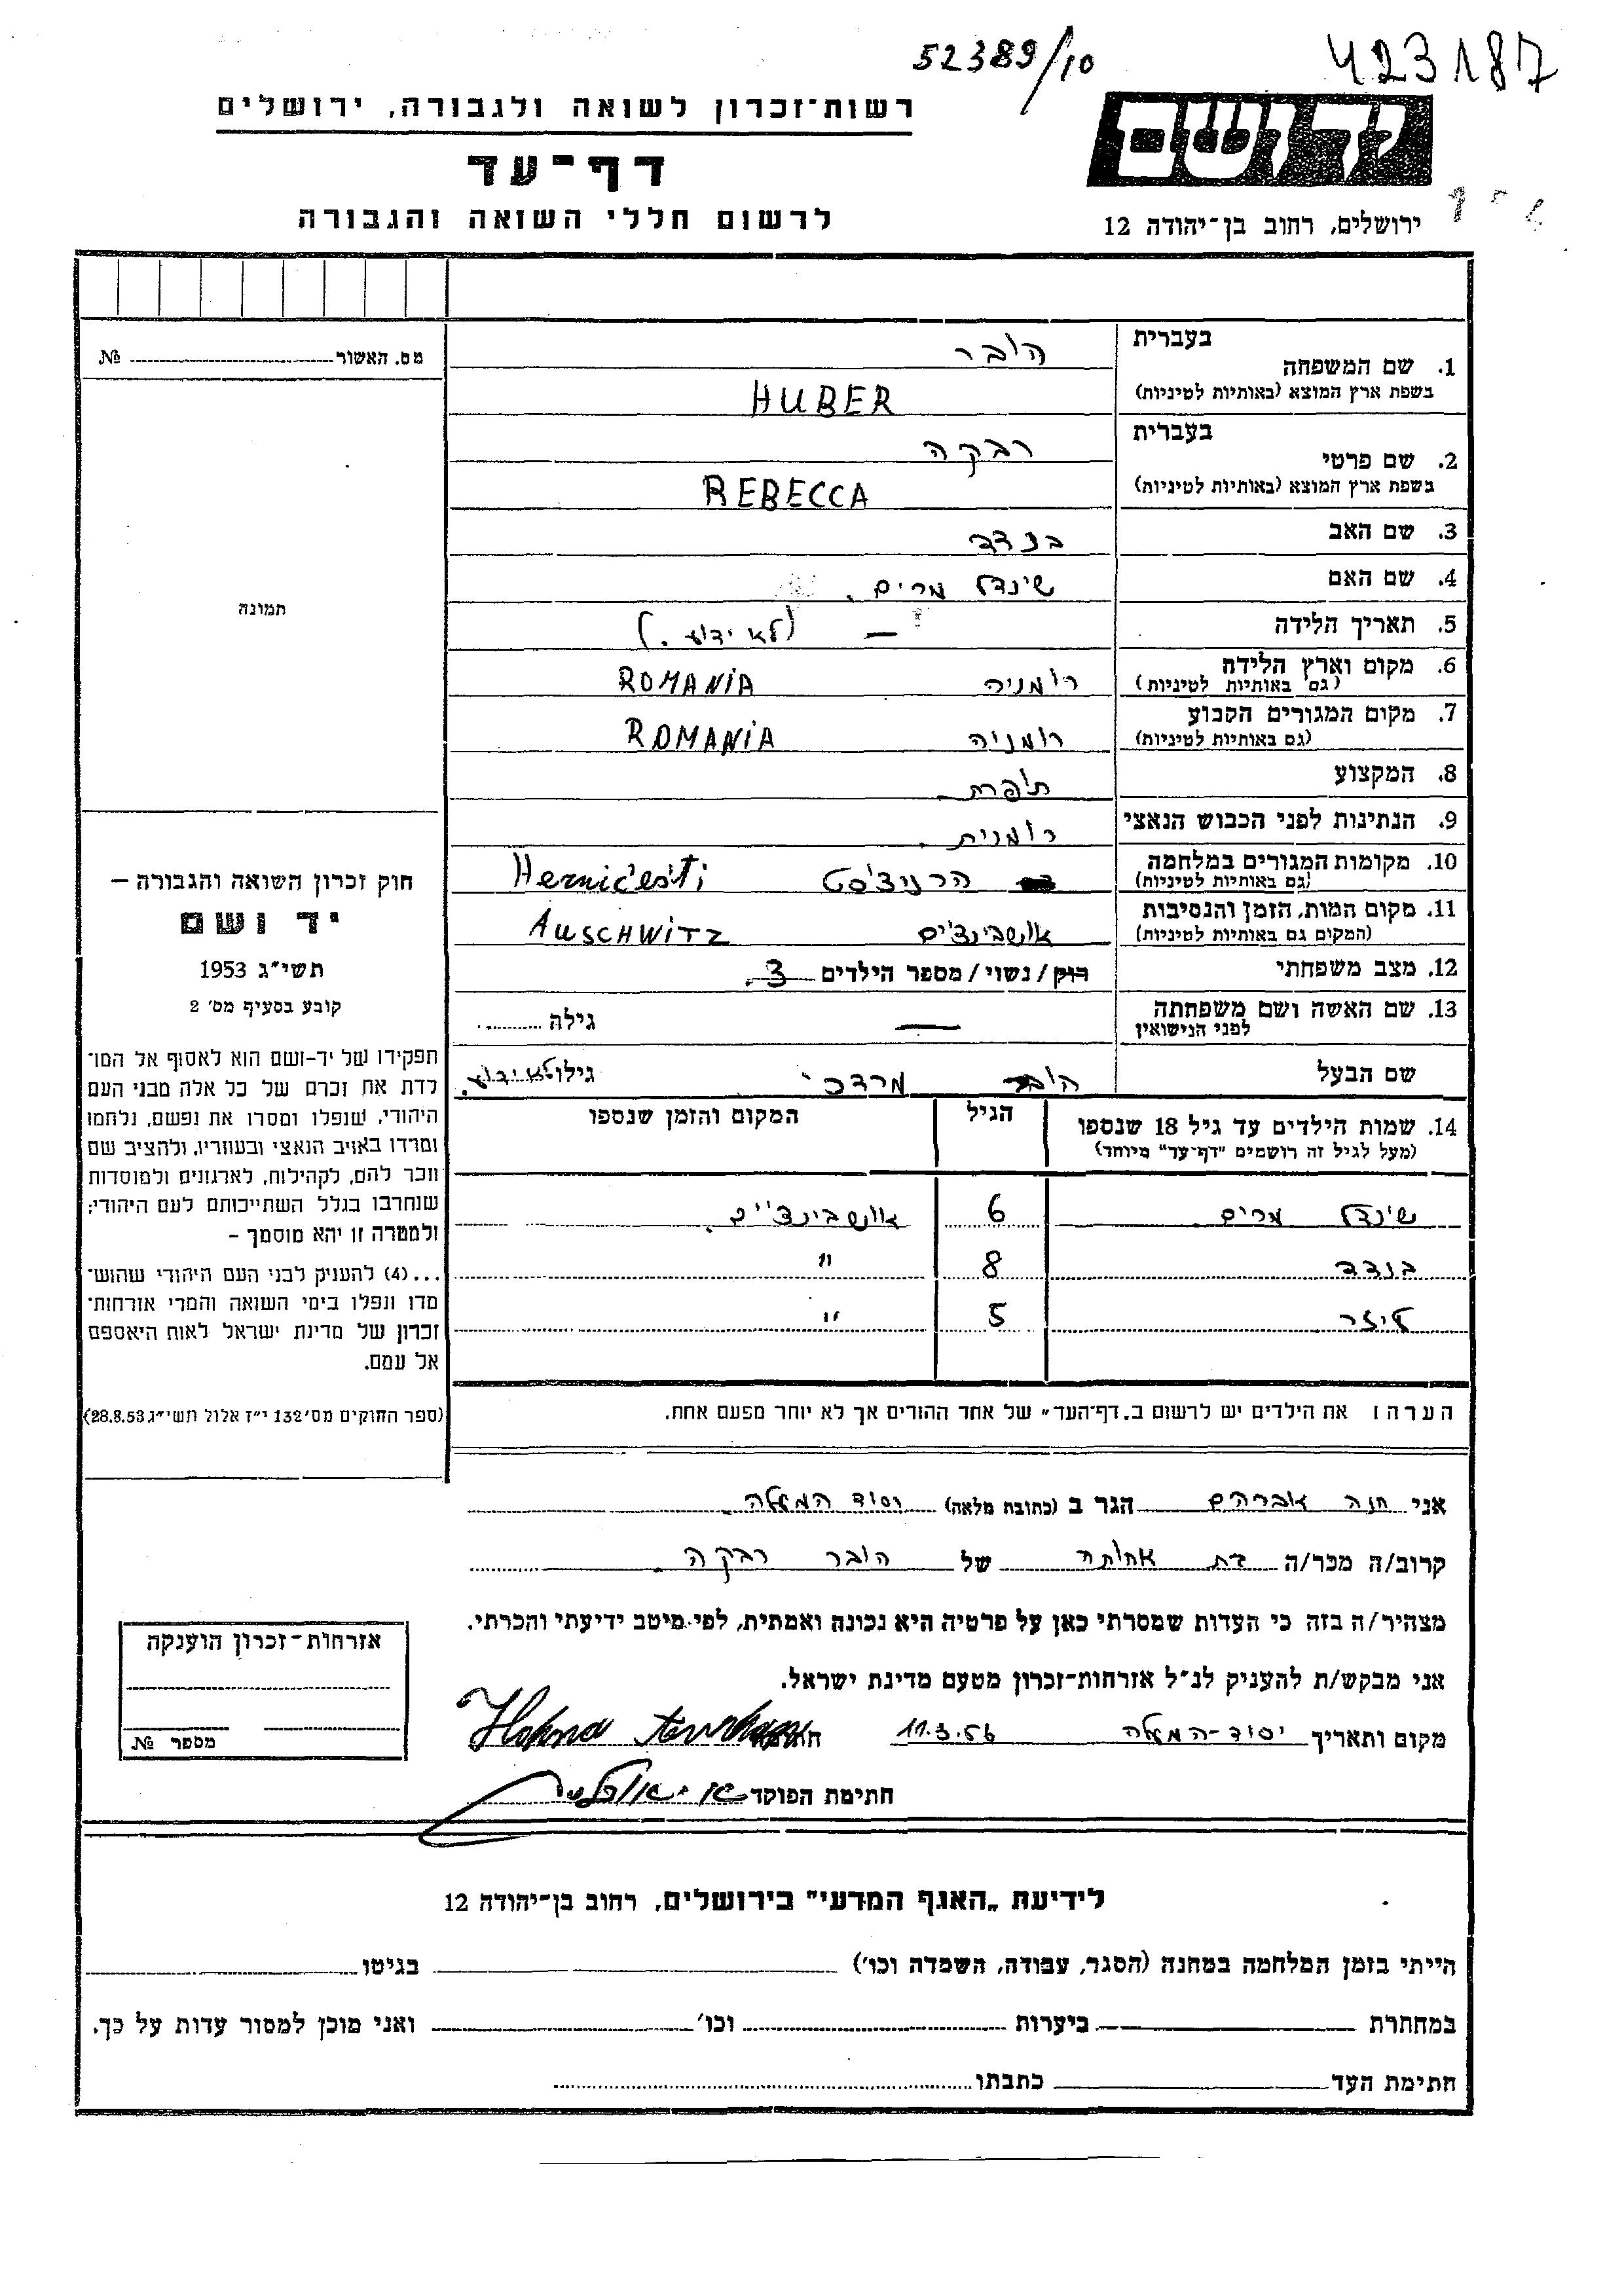 52389/10
423187
רשות־זכרון לשואה ולגבורה, ירושלים
דף־עד
לרשום חללי השואה והגבורה
ידושם
ירושלים, רחוב בן־יהודה 12
מס. האשור № 
תמונה
חוק זכרון השואה והגבורה —
יד ושם
תשי״ג 1953
קובע בסעיף מס׳ 2
תפקידו של יד-ושם הוא לאסוף אל המו־
לדת את זכרם של כל אלה מבני העם
היהודי, שנפלו ומסרו את נפשם, נלחמו
ומרדו באויב הנאצי ובעוזריו, ולהציב שם
וזכר להם, לקהילות, לארגונים ולמוסדות
שנחרבו בגלל השתייכותם לעם היהודי;
ולמטרה זו יהא מוסמך –
...(4) להעניק לבני העם היהודי שהוש־
מדו ונפלו בימי השואה והמרי אזרחות־
זכרון של מדינת ישראל לאות היאספם
אל עמם.
(ספר החוקים מס׳ 132 י״ז אלול תשי״ג 28.8.53)
1. שם המשפחה בעברית הובר
בשפת ארץ המוצא (באותיות לטיניות) HUBER
2. שם פרטי בעברית רבקה
בשפת ארץ המוצא (באותיות לטיניות) REBECCA
3. שם האב
4. שם האם שינדל מרים.
5. תאריך הלידה — (לא ידוע.)
6. מקום וארץ הלידה (גם באותיות לטיניות) רומניה ROMANiA
7. מקום המגורים הקבוע (גם באותיות לטיניות) רומניה ROMANiA
8. המקצוע תופרת
9. הנתינות לפני הכבוש הנאצי רומנית.
10. מקומות המגורים במלחמה (גם באותיות לטיניות) הרניצ'סט Herničesti
11. מקום המות, הזמן והנסיבות (המקום גם באותיות לטיניות) אושבינצ'ים AuSCHWiTZ
12. מצב משפחתי רוק/נשוי/מספר הילדים 3.
13. שם האשה ושם משפחתה לפני הנישואין — גילה
שם הבעל הובר מרדכי גילו לא ידוע.
14. שמות הילדים עד גיל 18 שנספו הגיל המקום והזמן שנספו
(מעל לגיל זה רושמים "דף־עד" מיוחד)
שינדל מרים 6 אושבינצ'ים.
8 "
5 "
הערה: את הילדים יש לרשום ב„דף־העד״ של אחד ההורים אך לא יותר מפעם אחת.
אני חנה אברהם הגר ב (כתובת מלאה) יסוד המעלה.
קרוב/ה מכר/ה בת אחותה של הובר רבקה.
מצהיר/ה בזה כי העדות שמסרתי כאן על פרטיה היא נכונה ואמתית, לפי מיטב ידיעתי והכרתי.
אני מבקש/ת להעניק לנ״ל אזרחות־זכרון מטעם מדינת ישראל.
מקום ותאריך יסוד-המעלה 11.3.56 חתימה
חתימת הפוקד
אזרחות־זכרון הוענקה
מספר №
לידיעת „האגף המדעי״ בירושלים, רחוב בן־יהודה 12
הייתי בזמן המלחמה במחנה (הסגר, עבודה, השמדה וכו׳) בגיטו
במחתרת ביערות וכו׳ ואני מוכן למסור עדות על כך.
חתימת העד כתבתו